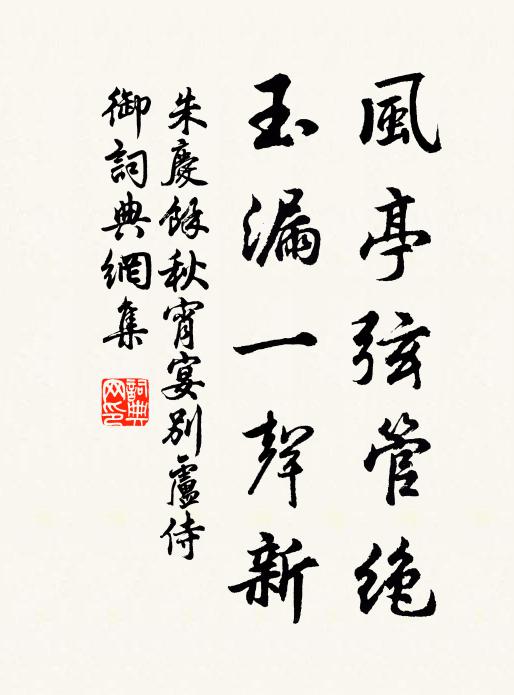 風亭弦管絶
玉漏一聲新
朱慶餘秋宵宴別盧侍
御詞典網集
詞典
网印